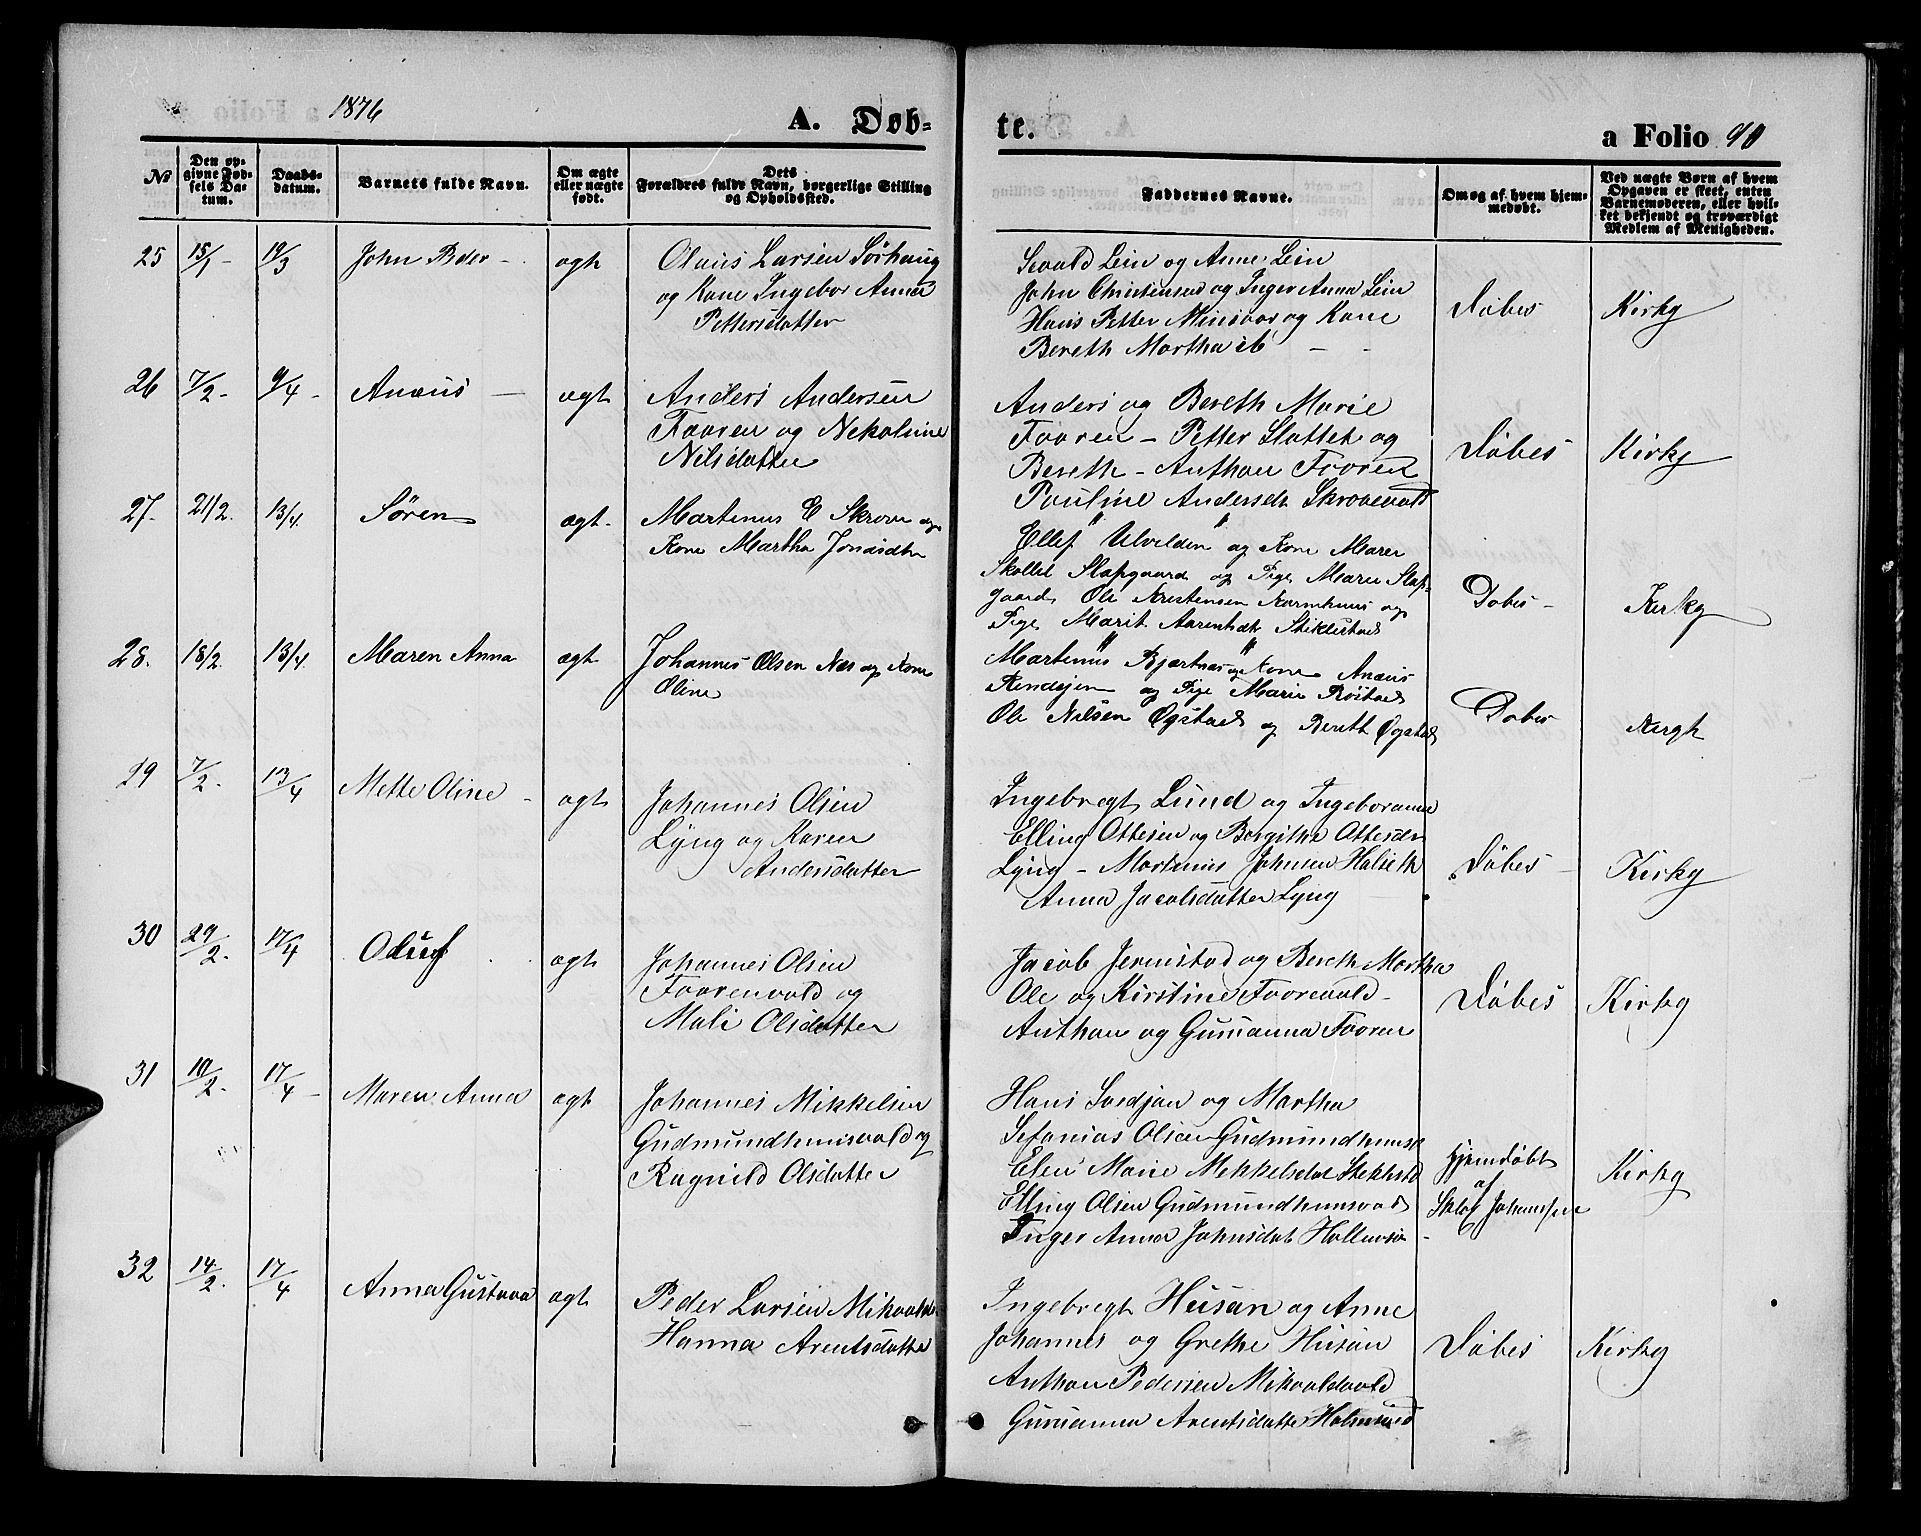 1876
A. Døb-
te.
a Folio 90
No
Den op-
givne Fød-
sels Da-
tum.
Daabs-
datum.
Barnets fulde Navn.
Om ægte
eller uægte
født.
Dets
Forældres fulde Navn, borgerlige Stilling
og Opholdssted.
Faddernes Navne.
Om og af hvem hjem-
medøbt.
Ved uægte Børn af hvem
Opgaven er skeet, enten
Barnemoderen, eller hvil-
ket bekjendt og troværdigt
Medlem af Menigheden.
25 15/1 - 19/3 John Peder - ægte
Olaus Larsen Sørhaug
og Kone Ingebor Anna
Pettersdatter
Sivald Lein og Anne Lein
John Christensen og Inger Anna Lein
Hans Petter Minsaas og Kone
Bereth Martha ib - -
Døbes Kirkg
26 7/2 - 9/4 - Anæus - ægt
Anders Andersen
Faaren og Nekoline
Nilsdatter
Anders og Bereth Marie
Faaren - Petter Slattet og
Bereth - Anthon Faaren
Pauline Andersdt Skrovevald
Døbes Kirkg
27. 21/2. 13/4. Søren ægt.
Martinus E Skrove og
Kone Martha Jonasdtr
Ellef Ulvilden og Kone Maren
Slapgaard og Pige Maren Slap-
gaard, Ole Kristensen Kornhuus og
Pige Marit Aarentsdt Stiklestad
Døbes - Kirkg
28. 18/2. 13/4. Maren Anna ægt
Johannes Olsen Næs og Kone
Oline
Martinus Bjartnæs og Kone Anæus
og Pige Marie Røstad
Ole Nilsen Øgstad og Bereth Øgstad
Døbes Kirgh
29 7/2. 13/4 Mette Oline - ægt
Johannes Olsen
Lyng og Karen
Andersdatter
Ingebregt Lund og Ingeboranna
Elling Ottesen og Borgitha Ottesdtr
Lyng - Martinus Johnsen Halseth
Anna Jacobsdatter Lyng
Døbes - Kirkg
30 29/2. 17/4 Oduf ægt
Johannes Olsen
Faarenvald og
Mali Olsdatter
Jacob Jermstad og Bereth Martha
Ole og Kirstine Faarevald -
Anthon og Gurianna Faaren
Døbes Kirkg
31 19/2. 17/4 - Maren Anna ægt
Johannes Mikkelsen
Gudmundhusvald og
Ragnild Olsdatter
Hans Svedjan og Martha
Sefanias Olsen Gudmundhuus
Elen Marie Mikkelsdat Stiklestd
Elling Olsen Gudmundhusvald
Inger Anna Johnsdat
Hjemdøbt
af
Johannsen
Kirkg
32 14/2. 17/4 Anna Gustava ægt
Peder Larsen Mikvoldv
Hanna Arentsdatter
Ingebregt Husan og Anne
Johannes og Grethe Husan
Anthon Pedersen Mikvoldvald
Gurianna Arentsdatter Holmsund
Døbes Kirkg